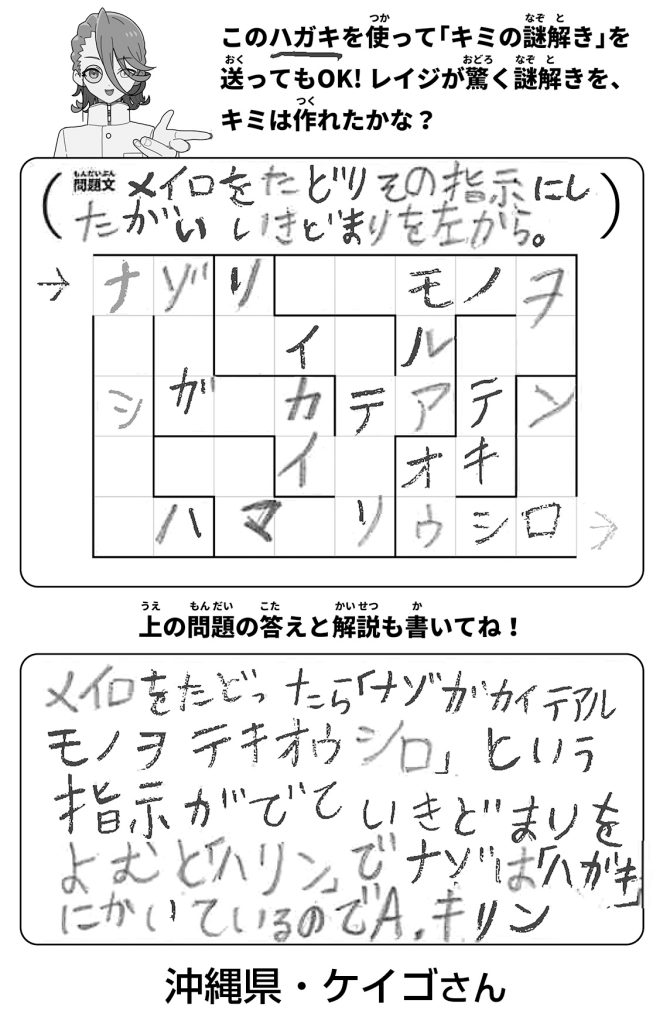 このハガキを使って「キミの謎解き」を
送ってもOK! レイジが驚く謎解きを、
キミは作れたかな？
(問題文 メイロをたどりその指示にし
たがい いきどまりを左から。)
→ ナ ゾ リ モ ノ ヲ
イ ル
シ ガ カ テ ア テ ン
イ オ キ
ハ マ リ ウ シ ロ →
上の問題の答えと解説も書いてね！
メイロをたどったら「ナゾガカイテアル
モノヲテキオウシロ」という
指示がでていきどまりを
よむと「ハリン」でナゾは「ハガキ」
にかいているのでA.キリン
沖縄県・ケイゴさん